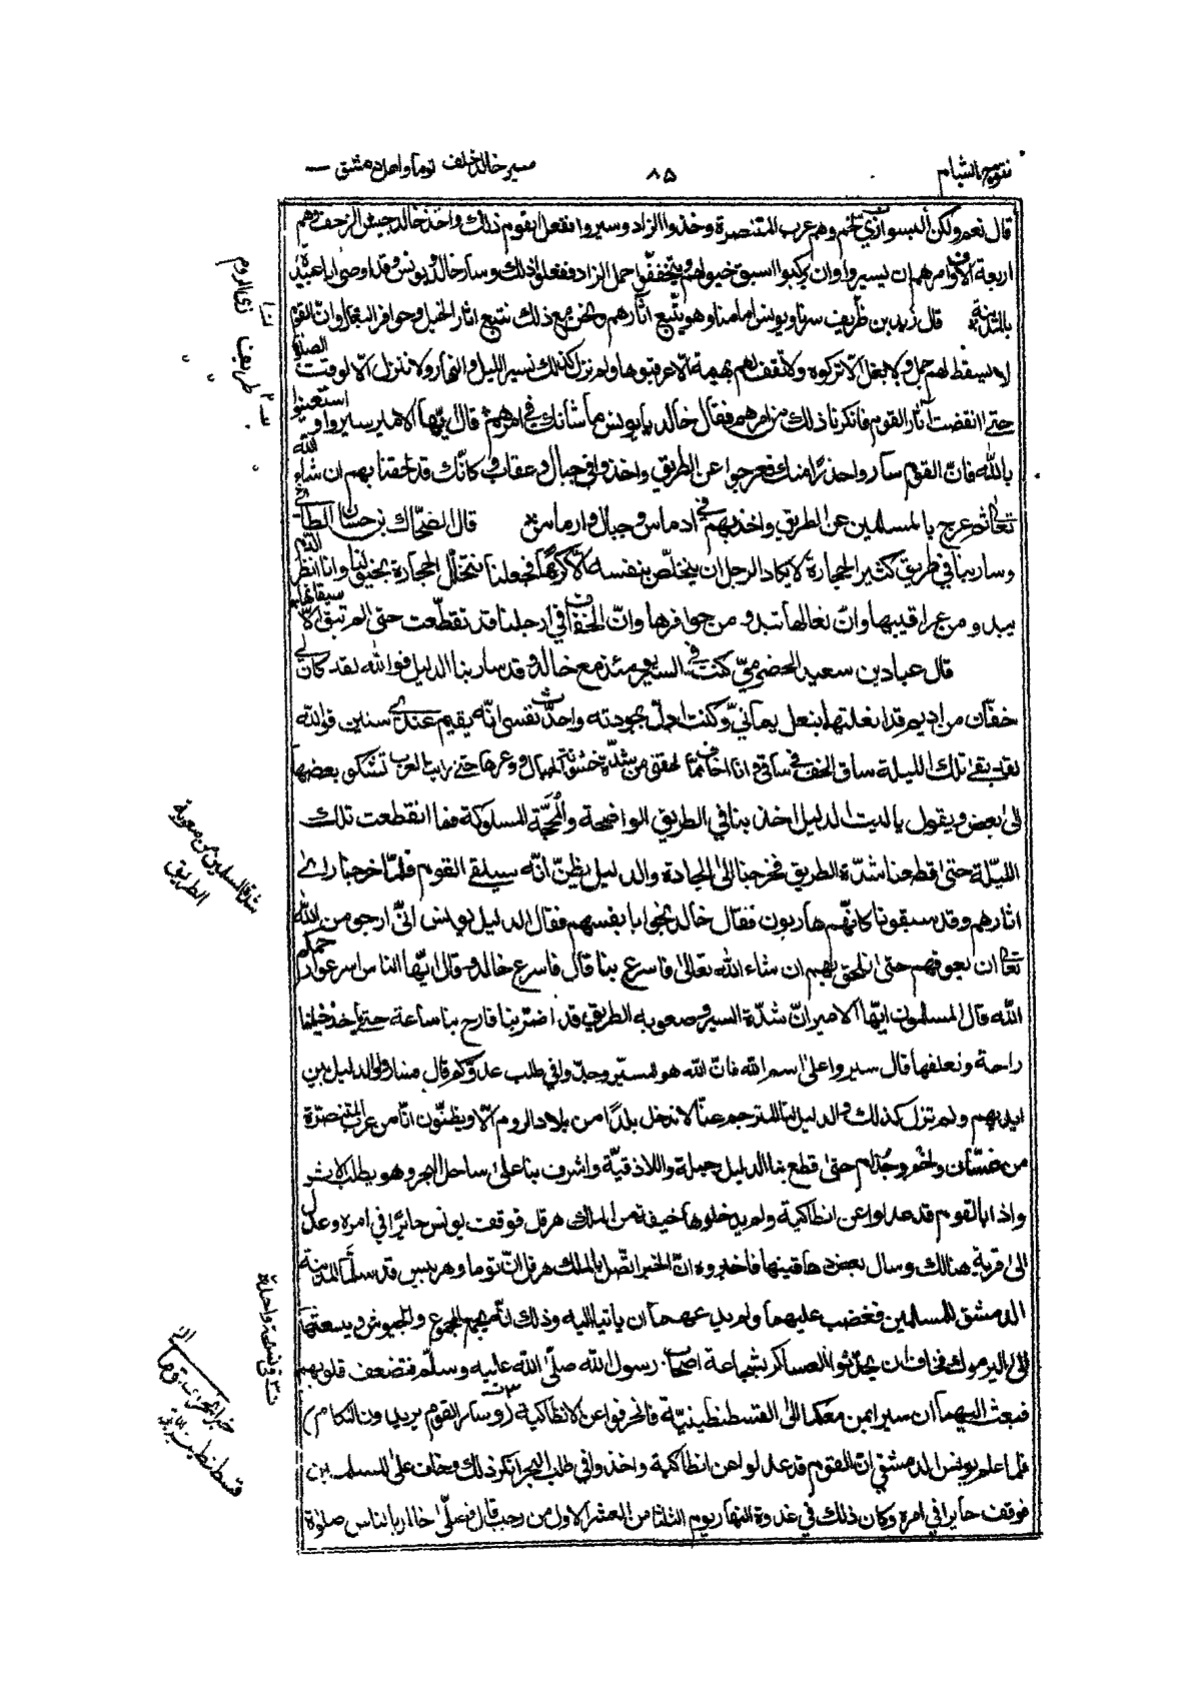 فتوح الشام
۸۵
مسير خالد خلف توما واهل دمشق
قال نعم ولكن البسوا زي لخم وهم عرب المتنصرة وخذوا الزاد وسيروا ففعل القوم ذلك واخذ خالد جيش الزحف وهم
اربعة الاف وامرهم ان يسيروا وان يركبوا اسبق خيولهم ويتخففوا حمل الزاد ففعلوا ذلك وسار خالد ويونس وقد اوصى ابا عبيدة
بالمدينة قال زيد بن ظريف سرنا ويونس امامنا وهو يتّبع آثارهم ونحن مع ذلك نتبع اثار الخيل وحوافر البغال وانّ القوم
لا يسقط لهم جمل ولا بغل الّا تركوه ولا تقف لهم بهيمة الّا عرقبوها ولم نزل كذلك نسير الليل والنهار ولا ننزل الّا لوقت الصلوة
حتى انقضت آثار القوم فانكرنا ذلك من امرهم فقال خالد يا يونس ما شأنك في امرهم قال ايّها الامير سيروا واستعينوا
بالله فانّ القوم ساروا حذرًا منك فعرجوا عن الطريق واخذوا في جبال وعقاب وكانّك قد لحقنا بهم ان شاء الله
تعالى ثم عرج بالمسلمين عن الطريق واخذ بهم في ادماس وجبال وارماس قال الضحّاك بن حسان الطائي
وسار بنا في طريق كثير الحجارة لا يكاد الرجل ان يخلّص بنفسه الّا كرهًا فجعلنا نتخلل الحجارة بخيولنا وانا انظر الدم
يبدو من عراقيبها وانّ نعالها تبدو من حوافرها وانّ الخفاف في ارجلنا قد تقطّعت حتى لم تبق الّا سيقانها
قال عباد بن سعيد الحضرميّ كنت في السير يومئذ مع خالد وقد سار بنا الدليل فوالله لقد كان لي
خفّان من اديم قد انعلتها بنعل يمانيّ وكنت ادلّ بجودته واحدّث نفسي انّه يقيم عندي سنين فوالله
لقد بقي تلك الليلة ساق الخف في ساقي وانا اخاف مما لحقني من شدّة خشونة الجبال ووعرها حتى رايت العرب تشكو بعضها
الى بعض ويقول يا ليت الدليل اخذ بنا في الطريق الواضحة والمحجّة المسلوكة فما انقطعت تلك
الليّلة حتى قطعنا شدّة الطريق فخرجنا الى الجادة والدليل يظنّ انّه سيلقى القوم فلمّا خرجنا راى
اثارهم وقد سبقونا كانّهم هاربون فقال خالد نجوا بانفسهم فقال الدليل يونس انّي ارجو من الله
تعالى ان يعوقهم حتى نلحق بهم ان شاء الله تعالى فاسرع بنا قال فاسرع خالد وقال ايّها الناس اسرعوا رحمكم
الله قال المسلمون ايّها الامير انّ شدّة السير وصعوبه الطريق قد اضرّ بنا فارح بنا ساعة حتى ياخذ خيلنا
راحة ونعلفها قال سيروا على اسم الله فانّ الله هو المسيّر وجدّوا في طلب عدوّكم قال فساروا والدليل بين
ايديهم ولم نزل كذلك والدليل يترجم عنّا لا ندخل بلدًا من بلاد الروم الّا ويظنّون انّا من عرب المتنصّرة
من غسّان ولخم وجذام حتى قطع بنا الدليل جبلة واللاذقيّة واشرف بنا على ساحل البحر وهو يطلب الاثر
واذا بالقوم قد عدلوا عن انطاكية ولم يدخلوها خيفة من الملك هرقل فوقف يونس حائرًا في امره وعدل
الى قرية هنالك وسال بعض دهاقينها فاخبروه انّ الخبر اتّصل بالملك هرقل انّ توما وهربيس قد سلّما المدينة
الى دمشق للمسلمين فغضب عليهما ولم يدعهما ان ياتيا اليه وذلك انّه يجمع الجموع والجيوش ويبعثها
الى اليرموك فخاف ان يحدّثوا العساكر بشجاعة اصحاب رسول الله صلّى الله عليه وسلّم فتضعف قلوبهم
فبعث اليهما ان سيرا بمن معكما الى القسطنطينيّة فانحرفوا عن الانطاكية (وسار القوم يريدون اللكام)
فلما علم يونس الدمشقي انّ القوم قد عدلوا عن انطاكية واخذوا في طلب البحر انكر ذلك وخاف على المسلمين
فوقف حايرا في امره وكان ذلك في غدوة النهار يوم الثلثا من العشر الاول من رجب قال فصلّى خالد بالناس صلوة
زي الروم
طريف
شدة المسلمين من صعوبة
الطريق
ن۳ في نسخة واحدة